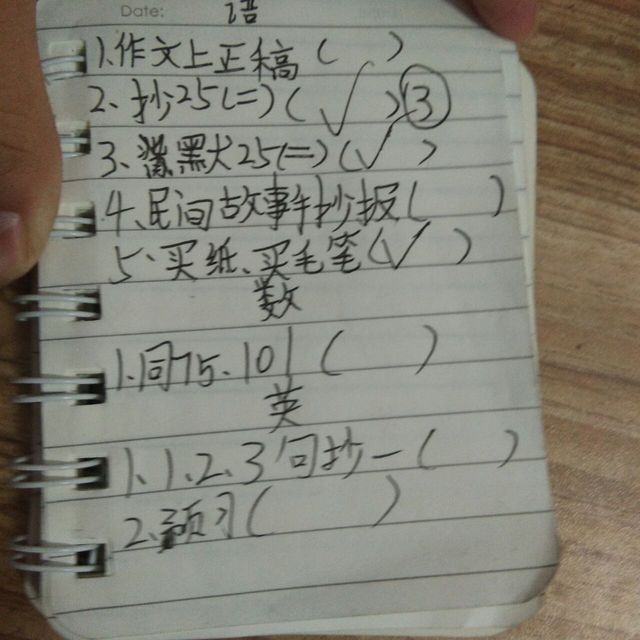 Date:
语
1.作文上正稿( )
2、抄25(二)(√)③
3、黑大25(二)(√)
4、民间故事手抄报( )
5、买纸、买毛笔(√)
数
1.同75、101( )
英
1.1.2.3句抄一( )
2.预习( )